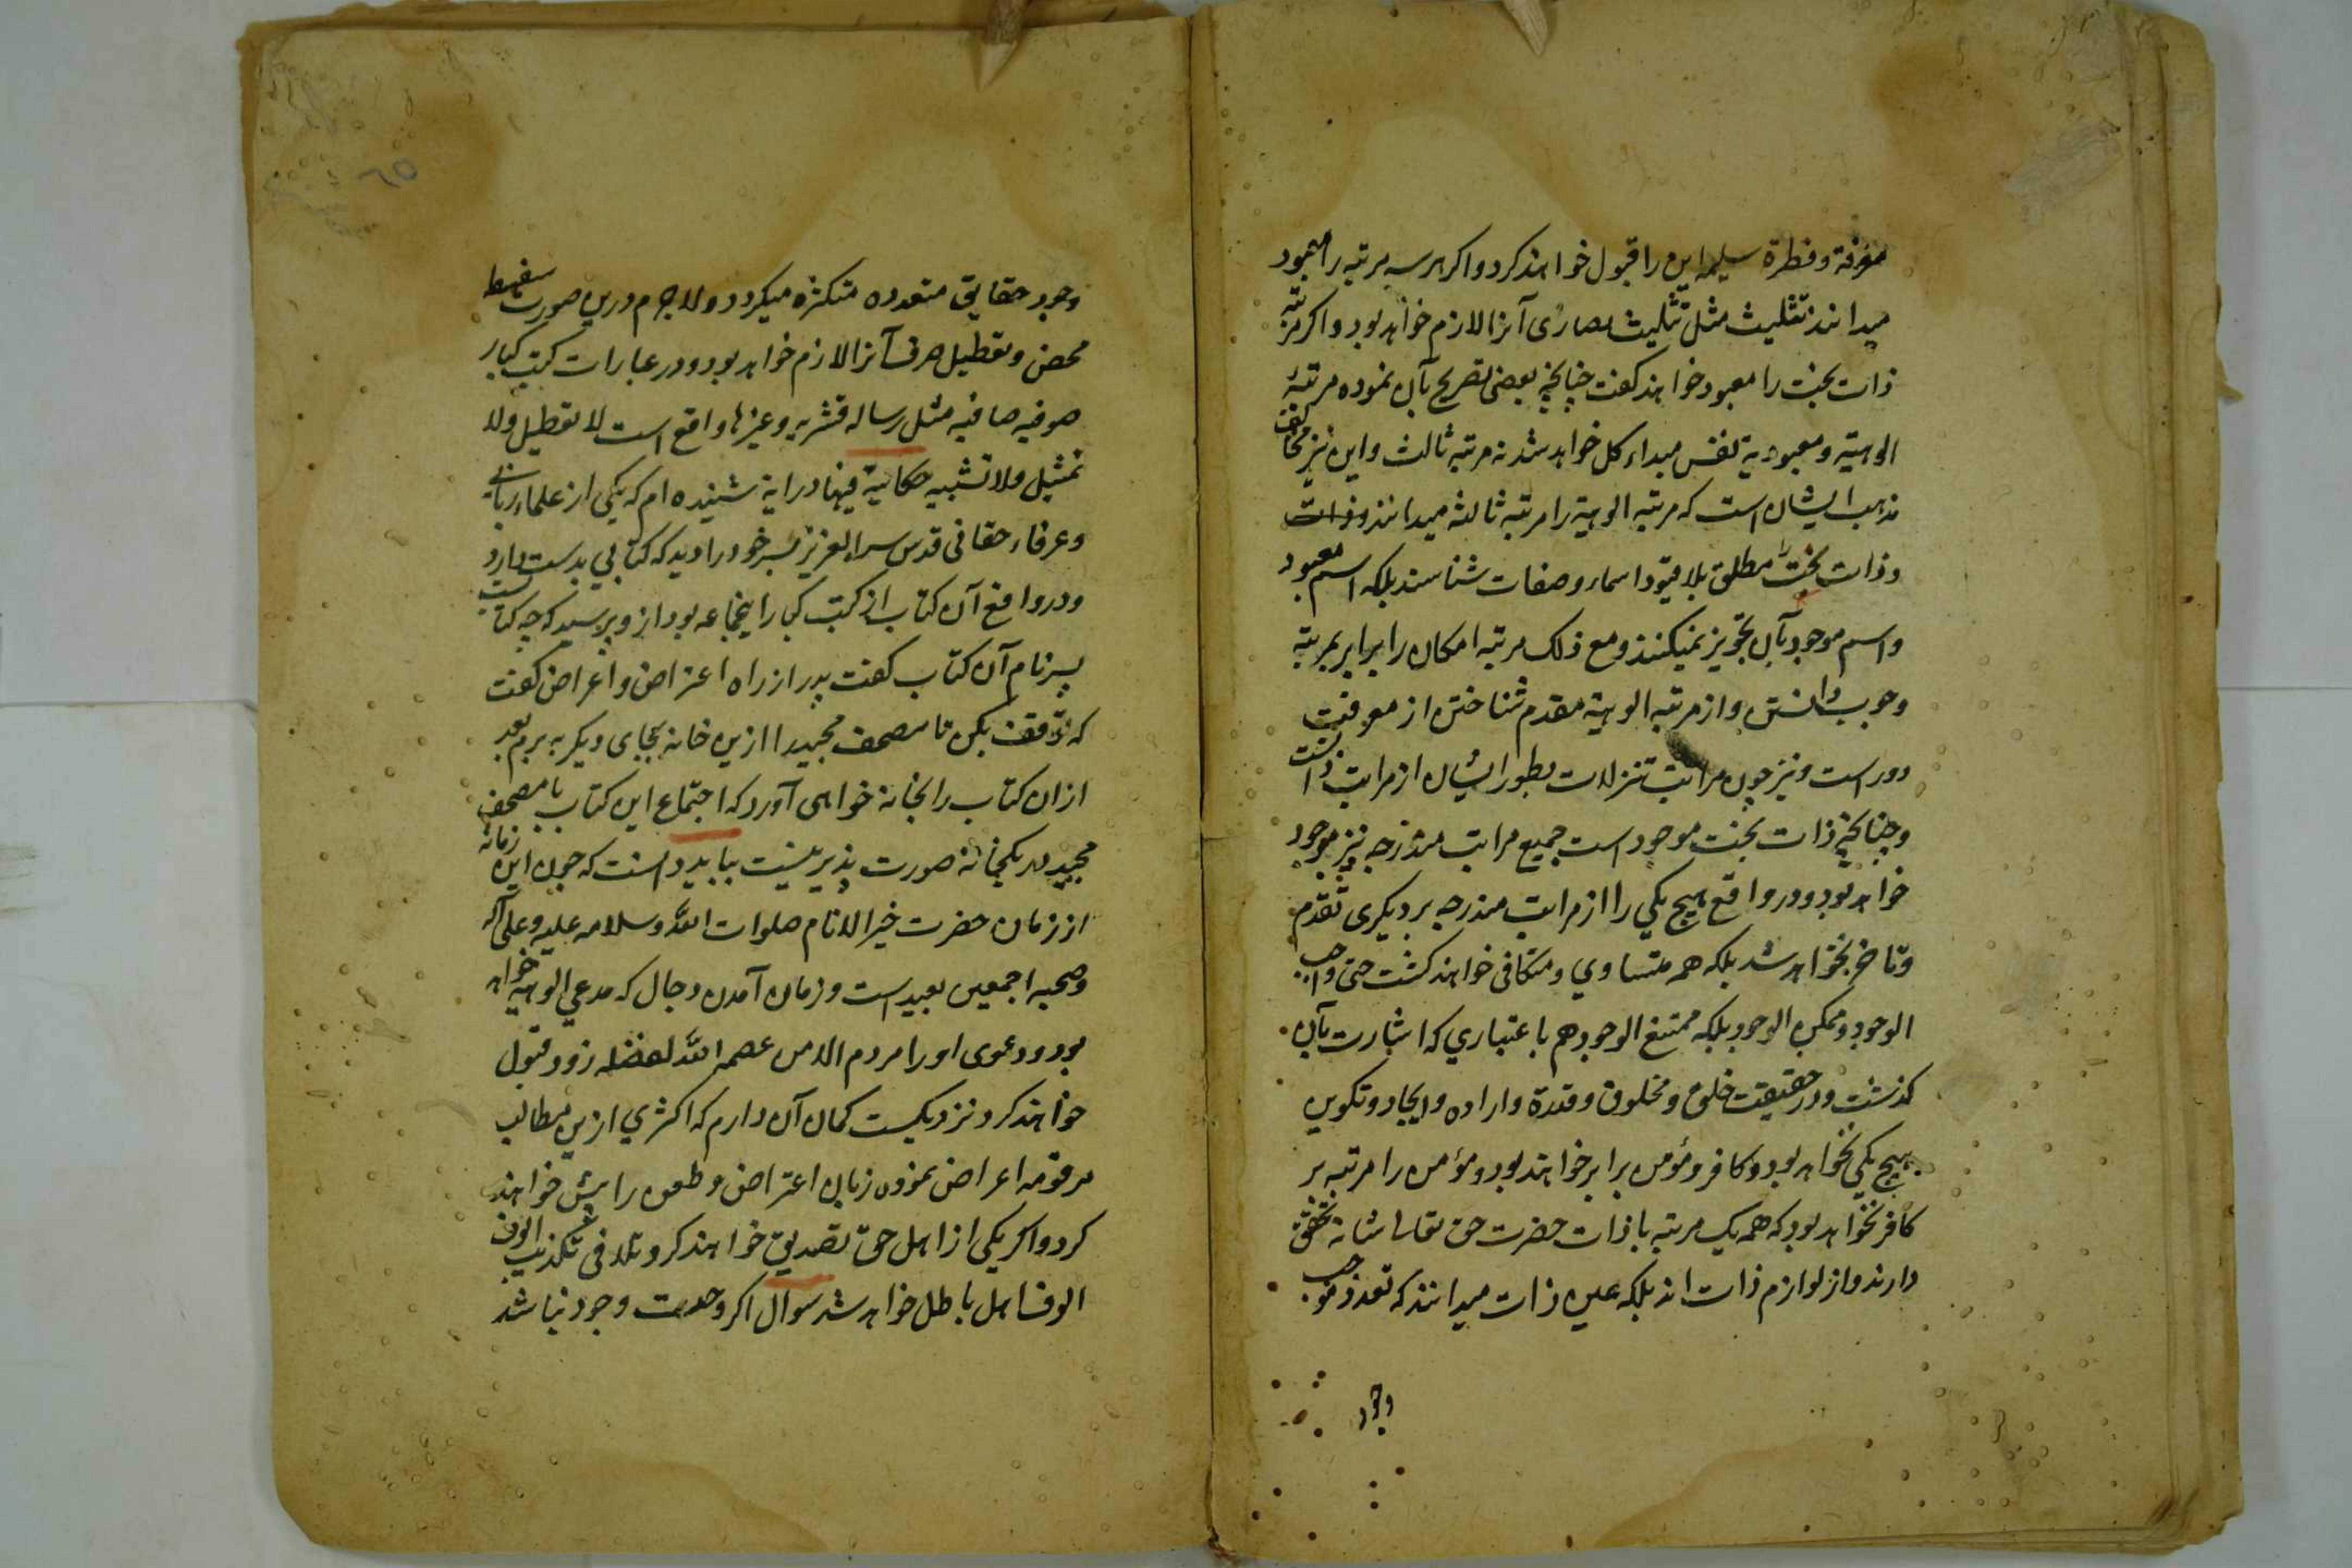 معرفة وفطرة سلیمه این را قبول خواهند کرد و اکر هر سه مرتبه را معبود
میدانند تثلیث مثل تثلیث نصاری آنرا لازم خواهد بود و اکر مرتبه
ذات بحت را معبود خواهند کفت چنانچه بعضی تصریح بآن نموده مرتبهٔ
الوهیة و معبودیة نفس مبداء کل خواهد شد نه مرتبه ثالث و این نیز مخالف
مذهب ایشان است که مرتبه الوهیة را مرتبه ثالثه میدانند و ذات
و ذات بحت را مطلق بلا قیود اسماء و صفات شناسند بلکه اسم معبود
و اسم موجود بآن تجویز نمیکنند و مع ذلک مرتبه امکان را برابر بمرتبه
وجوب دانستن و از مرتبه الوهیة مقدم شناختن از معرفت
دور است و نیز چون مراتب تنزلات بطور ایشان از مراتب ذات است
و چنانچه ذات بحت موجود است جمیع مراتب مندرجه نیز موجود
خواهد بود و در واقع هیچ یکی را از مراتب مندرجه بر دیکری تقدم
و تاخر نخواهد شد بلکه همه متساوي و متکافی خواهند کشت حتی واجب
الوجود و ممکن الوجود بلکه ممتنع الوجود هم باعتباري که اشارت بآن
کذشت و در حقیقت خلق و مخلوق و قدرة و اراده و ایجاد و تکوین
هیچ یکی نخواهد بود و کافر و مؤمن برابر خواهند بود و مؤمن را مرتبه بر
کافر نخواهد بود که همه یک مرتبه با ذات حضرت حق تعالی شانه تحقق
دارند و از لوازم ذات اند بلکه عین ذات میدانند که تعدد موجب
وجود
٦٥
وجود حقایق متعدده متکثره میکردد و لاجرم درین صورت سفسطه
محض و تعطیل صرف آنرا لازم خواهد بود و در عبارات کتب کبار
صوفیه صافیه مثل رساله قشریه و غیرها واقع است لا تعطیل ولا
تمثیل ولا تشبیه حکایة فیها درایة شنیده ام که یکی از علماء ربانی
و عرفاء حقانی قدس سره العزیز پسر خود را دید که کتابي بدست دارد
و در واقع آن کتاب از کتب کبار اینجماعه بود ازو پرسید که چه کتابست
پسر نام آن کتاب کفت پدر از راه اعتراض و اعراض کفت
که توقف بکن تا مصحف مجید را ازین خانه بجای دیکر به برم بعد
ازان کتاب را بخانه خواهی آورد که اجتماع این کتاب با مصحف
مجید در یکخانه صورت پذیر نیست بباید دانست که چون این زمانه
از زمان حضرت خیر الانام صلوات الله وسلامه علیه وعلی آله
وصحبه اجمعین بعید است و زمان آمدن دجال که مدعي الوهیة خواهد
بود و دعوی او را مردم الا من عصمه الله بفضله زود قبول
خواهند کرد نزدیکست کمان آن دارم که اکثري ازین مطالب
مرقومه اعراض نموده زبان اعتراض و طعن را پیش خواهند
کرد و اکر یکی از اهل حق تصدیق خواهند کرد تلافی تکذیب الوف
الوف اهل باطل خواهد شد سوال اکر وحدت وجود نباشد